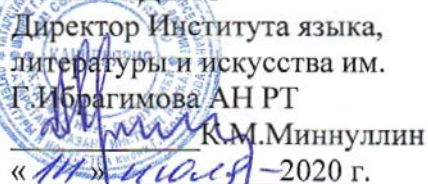 Директор Института языка,
литературы и искусства им.
Г.Ибрагимова АН РТ
К.М.Миннуллин
« » июля 2020 г.